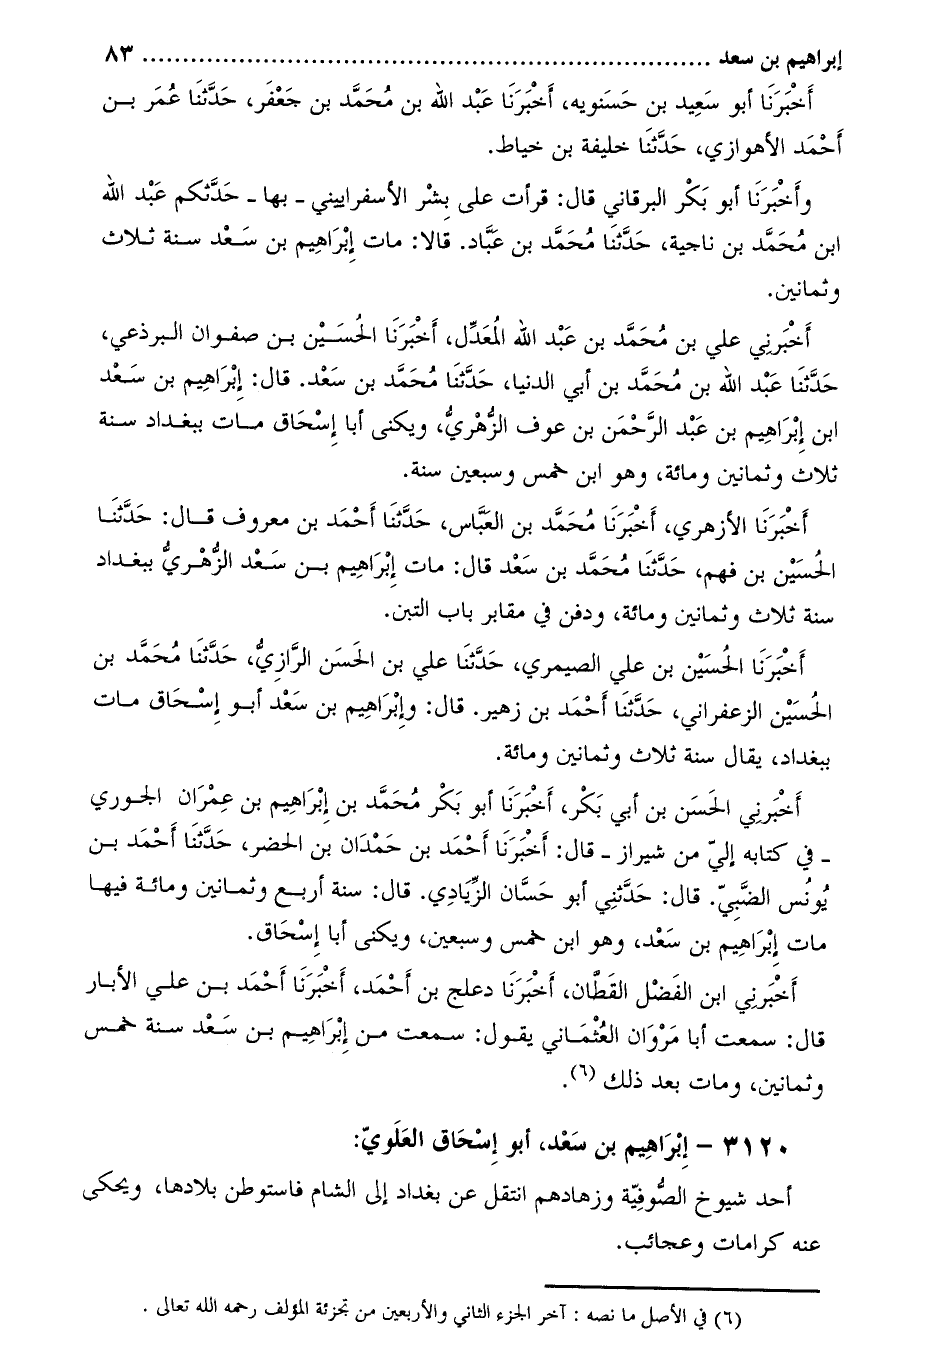 إبراهيم بن سعد ........................................................................ ٨٣
أَخْبَرَنَا أبو سَعِيد بن حَسنويه، أَخْبَرَنَا عَبْد الله بن مُحَمَّد بن جَعْفَر، حَدَّثنَا عُمَر بـن
أَحْمَد الأهوازي، حَدَّثنَا خليفة بن خياط.
وأَخْبَرَنَا أبو بَكْر البرقاني قال: قرأت على بِشْر الأسفراييني ـ بها ـ حَدَّثكم عَبْد الله
ابن مُحَمَّد بن ناجية، حَدَّثنَا مُحَمَّد بن عَبَّاد. قالا: مات إِبْرَاهِيم بن سَعْد سنة ثلاث
وثمانين.
أَخْبَرنِي علي بن مُحَمَّد بن عَبْد الله المُعَدِّل، أَخْبَرَنَا الحُسَيْن بـن صفـوان الـبرذعي،
حَدَّثنَا عَبْد الله بن مُحَمَّد بن أبي الدنيا، حَدَّثنَا مُحَمَّد بن سَعْد. قال: إِبْرَاهِيم بن سَعْد
ابن إِبْرَاهِيم بن عَبْد الرَّحْمَن بن عوف الزُّهْرِيُّ، ويكنى أبا إِسْحَاق مـات ببغـداد سـنة
ثلاث وثمانين ومائة، وهو ابن خمس وسبعين سنة.
أَخْبَرَنَا الأزهري، أَخْبَرَنَا مُحَمَّد بن العَبَّاس، حَدَّثنَا أَحْمَد بن معروف قـال: حَدَّثنَـا
الحُسَيْن بن فهم، حَدَّثنَا مُحَمَّد بن سَعْد قال: مات إِبْرَاهِيم بـن سَعْد الزُّهْرِيُّ ببغـداد
سنة ثلاث وثمانين ومائة، ودفن في مقابر باب التبن.
أَخْبَرَنَا الحُسَيْن بن علي الصيمري، حَدَّثنَا علي بن الحَسَن الرَّازِيُّ، حَدَّثنَا مُحَمَّد بن
الحُسَيْن الزعفراني، حَدَّثنَا أَحْمَد بن زهير. قال: وإِبْرَاهِيم بن سَعْد أبـو إِسْـحَاق مـات
ببغداد، يقال سنة ثلاث وثمانين ومائة.
أَخْبَرنِي الحَسَن بن أبي بَكْر، أَخْبَرَنَا أبو بَكْر مُحَمَّد بن إِبْرَاهِيم بن عِمْرَان الجـوري
ـ في كتابه إليّ من شيراز ـ قال: أَخْبَرَنَا أَحْمَد بن حَمْدَان بن الخضر، حَدَّثنَا أَحْمَد بـن
يُونُس الضَّبِيّ. قال: حَدَّثنِي أبو حَسَّان الزِّيَادِي. قال: سنة أربـع وثمـانين ومائـة فيهـا
مات إِبْرَاهِيم بن سَعْد، وهو ابن خمس وسبعين، ويكنى أبا إِسْحَاق.
أَخْبَرنِي ابن الفَضْل القَطَّان، أَخْبَرَنَا دعلج بن أَحْمَد، أَخْبَرَنَا أَحْمَد بـن علـي الأبـار
قال: سمعت أبا مَرْوَان العُثْمَـاني يقـول: سـمعت مـن إِبْرَاهِيـم بـن سَـعْد سـنة خمـس
وثمـانين، ومات بعد ذلك (٦).
٣١٢٠ – إِبْرَاهِيم بن سَعْد، أبو إِسْحَاق العَلَوِيّ:
أحد شيوخ الصُّوفِيَّة وزهادهم انتقل عن بغداد إلى الشام فاستوطن بلادها، ويحكى
عنه كرامات وعجائب.
(٦) في الأصل ما نصه : آخر الجزء الثاني والأربعين من تجزئة المؤلف رحمه الله تعالى .